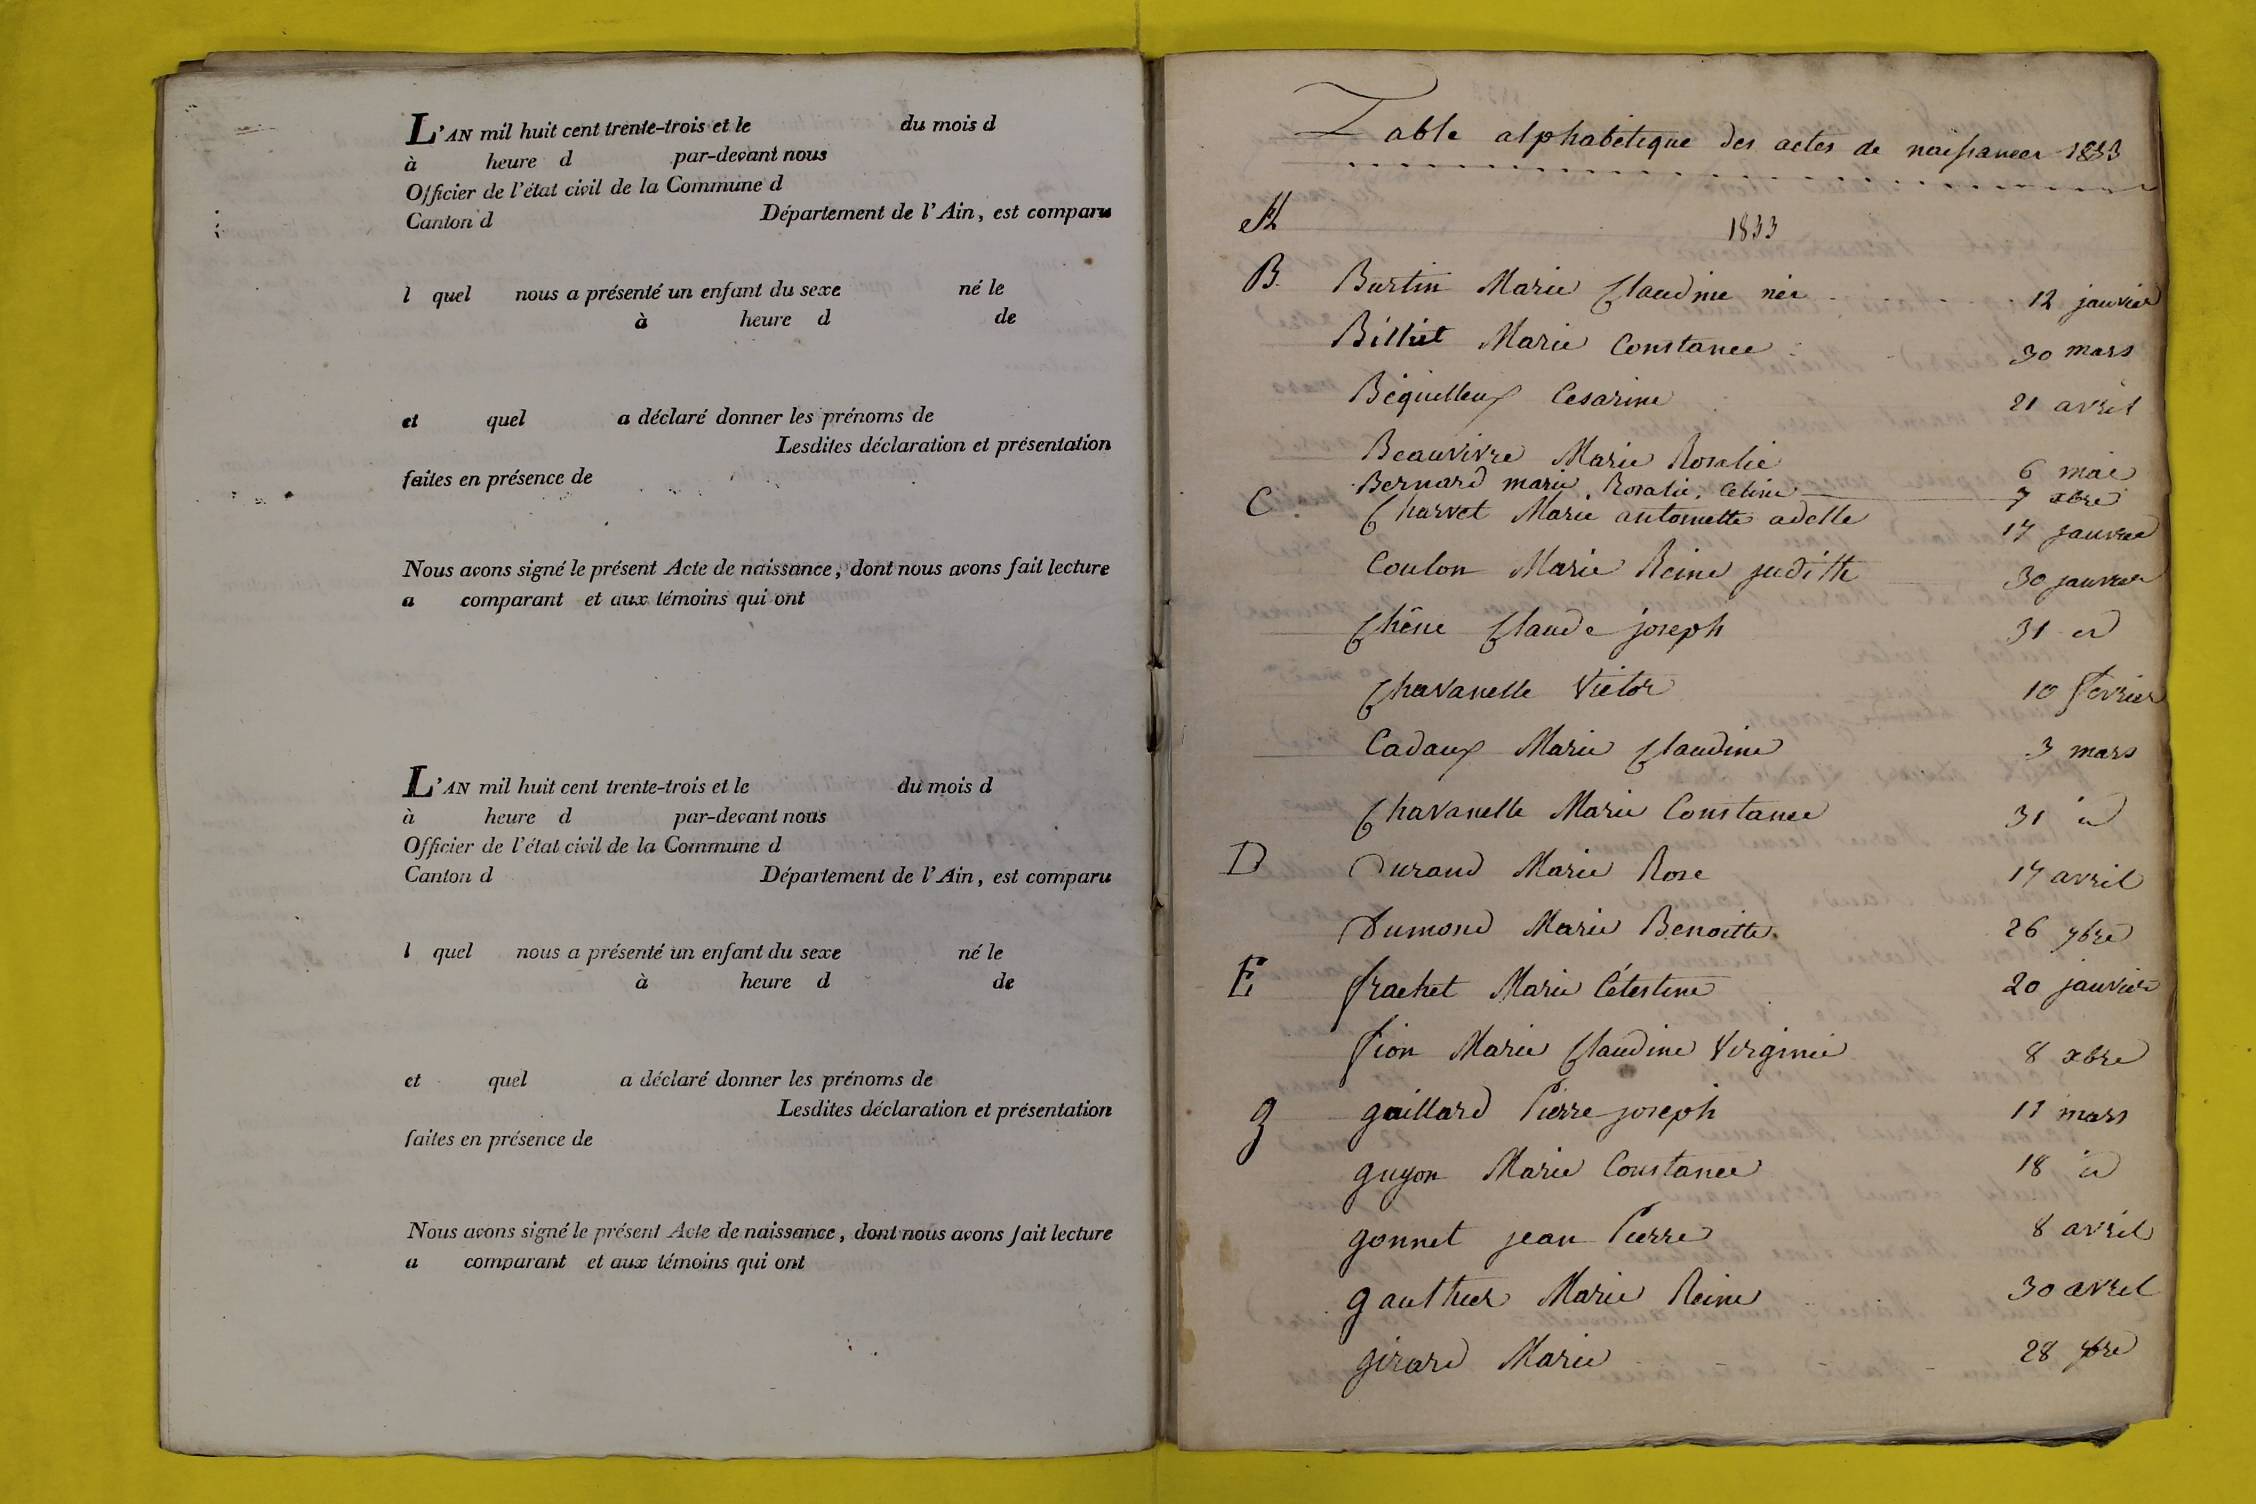 L'AN mil huit cent trente-trois et le du mois d
à heure d par-devant nous
Officier de l'état civil de la Commune d
Canton d Département de l'Ain, est comparu
l quel nous a présenté un enfant du sexe né le
à heure d de
et quel a déclaré donner les prénoms de
Lesdites déclaration et présentation
faites en présence de
Nous avons signé le présent Acte de naissance, dont nous avons fait lecture
a comparant et aux témoins qui ont
L'AN mil huit cent trente-trois et le du mois d
à heure d par-devant nous
Officier de l'état civil de la Commune d
Canton d Département de l'Ain, est comparu
l quel nous a présenté un enfant du sexe né le
à heure d de
et quel a déclaré donner les prénoms de
Lesdites déclaration et présentation
faites en présence de
Nous avons signé le présent Acte de naissance, dont nous avons fait lecture
a comparant et aux témoins qui ont
Table alphabétique des actes de naissances 1833
A 1833
B. Burtin Marie Claudine née 12 janvier
Billiet Marie Constance 30 mars
Béquilleux Cesarine 21 avril
Beauvivre Marie Rosalie 6 mai
Bernard marie, Rosalie, Celine 7 xbre
C Charvet Marie antoinette adelle 17 janvier
Coulon Marie Reine juditte 30 janvier
Chêne Claude joseph 31 id
Chavanelle Victor 10 fevrier
Cadaux Marie Claudine 3 mars
Chavanelle Marie Constance 31 id
D Durand Marie Rose 17 avril
Dumond Marie Benoitte 26 9bre
E frachet Marie Célestine 20 janvier
fion Marie Claudine Virginie 8 xbre
g gaillard Pierre joseph 11 mars
guyon Marie Constance 18 id
gonnet jean Pierre 8 avril
gauthier Marie Reine 30 avril
girard Marie 28